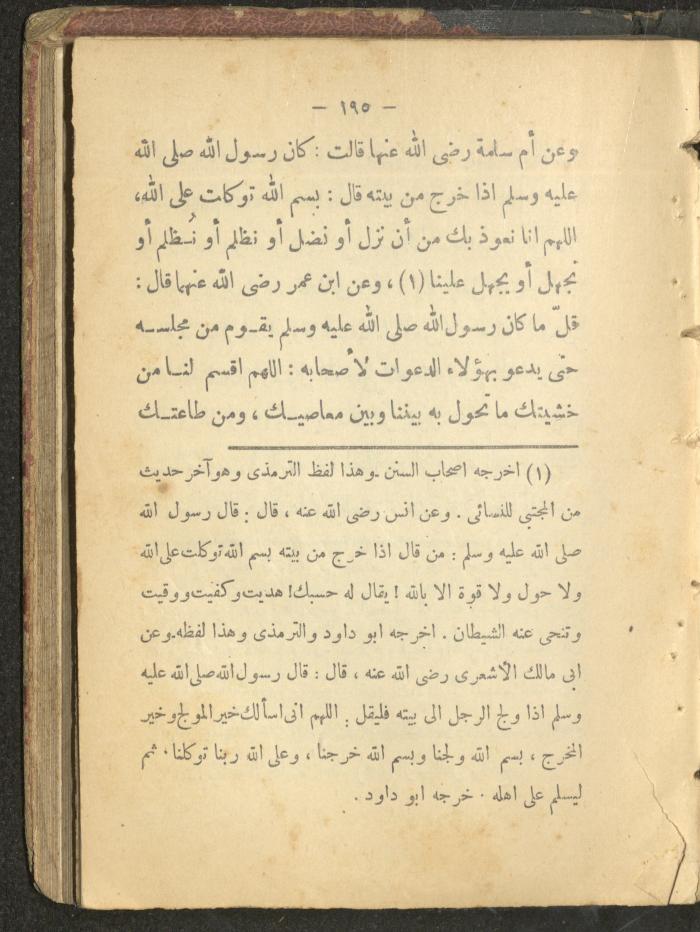 — ١٩٥ —
وعن أم سلمة رضى الله عنها قالت : كان رسول الله صلى الله
عليه وسلم اذا خرج من بيته قال : بسم الله توكلت على الله،
اللهم انا نعوذ بك من أن نزل أو نضل أو نظلم أو نُظلم أو
نجهل أو يجهل علينا (١) ، وعن ابن عمر رضى الله عنهما قال :
قلّ ما كان رسول الله صلى الله عليه وسلم يقوم من مجلسه
حتى يدعو بهؤلاء الدعوات لأصحابه : اللهم اقسم لنا من
خشيتك ما تحول به بيننا وبين معاصيك ، ومن طاعتك
(١) اخرجه اصحاب السنن . وهذا لفظ الترمذى وهو آخر حديث
من المجتبى للنسائى . وعن انس رضى الله عنه ، قال : قال رسول الله
صلى الله عليه وسلم : من قال اذا خرج من بيته بسم الله توكلت على الله
ولا حول ولا قوة الا بالله ! يقال له حسبك ! هديت وكفيت ووقيت
وتنحى عنه الشيطان . اخرجه ابو داود والترمذى وهذا لفظه . وعن
ابى مالك الأشعرى رضى الله عنه ، قال : قال رسول الله صلى الله عليه
وسلم اذا ولج الرجل الى بيته فليقل : اللهم انى اسألك خير المولج وخير
المخرج ، بسم الله ولجنا وبسم الله خرجنا ، وعلى الله ربنا توكلنا . ثم
ليسلم على اهله . خرجه ابو داود .